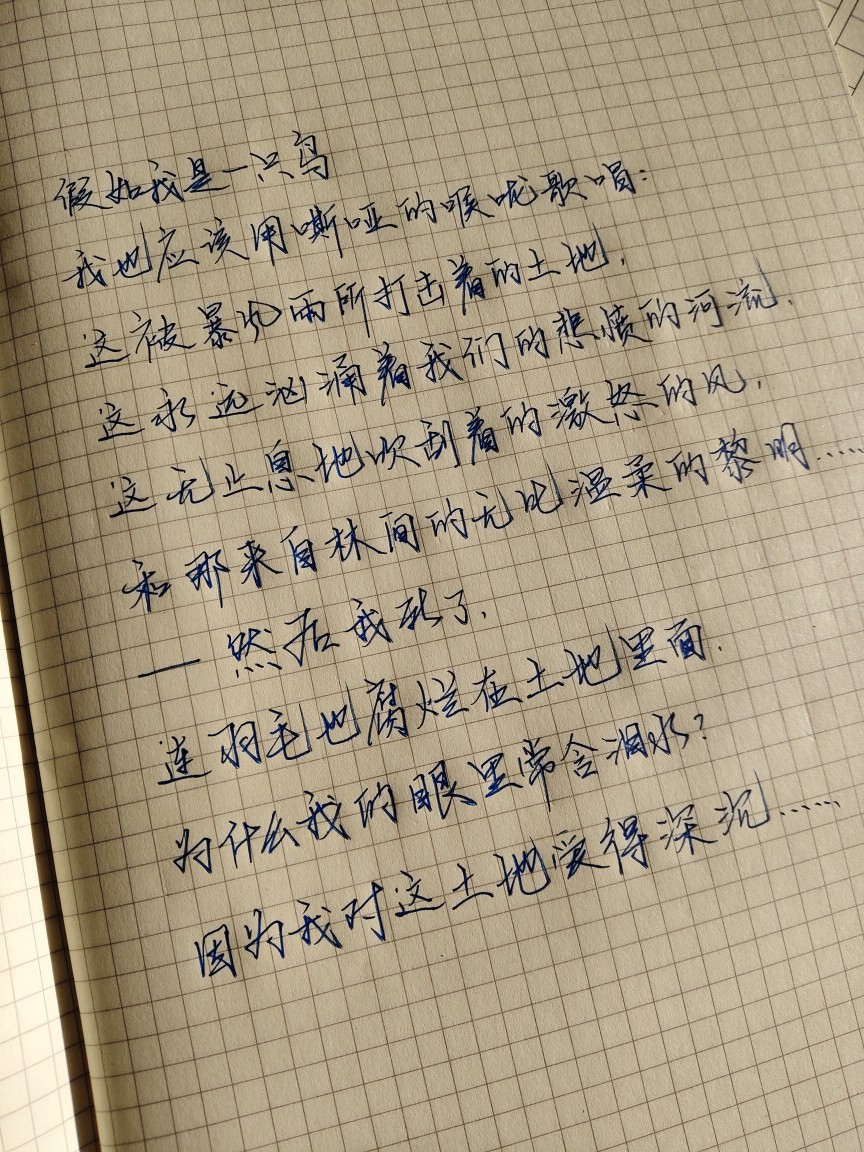 假如我是一只鸟
我也应该用嘶哑的喉咙歌唱：
这被暴风雨所打击着的土地，
这永远汹涌着我们的悲愤的河流，
这无止息地吹刮着的激怒的风，
和那来自林间的无比温柔的黎明……
——然后我死了，
连羽毛也腐烂在土地里面。
为什么我的眼里常含泪水？
因为我对这土地爱得深沉……